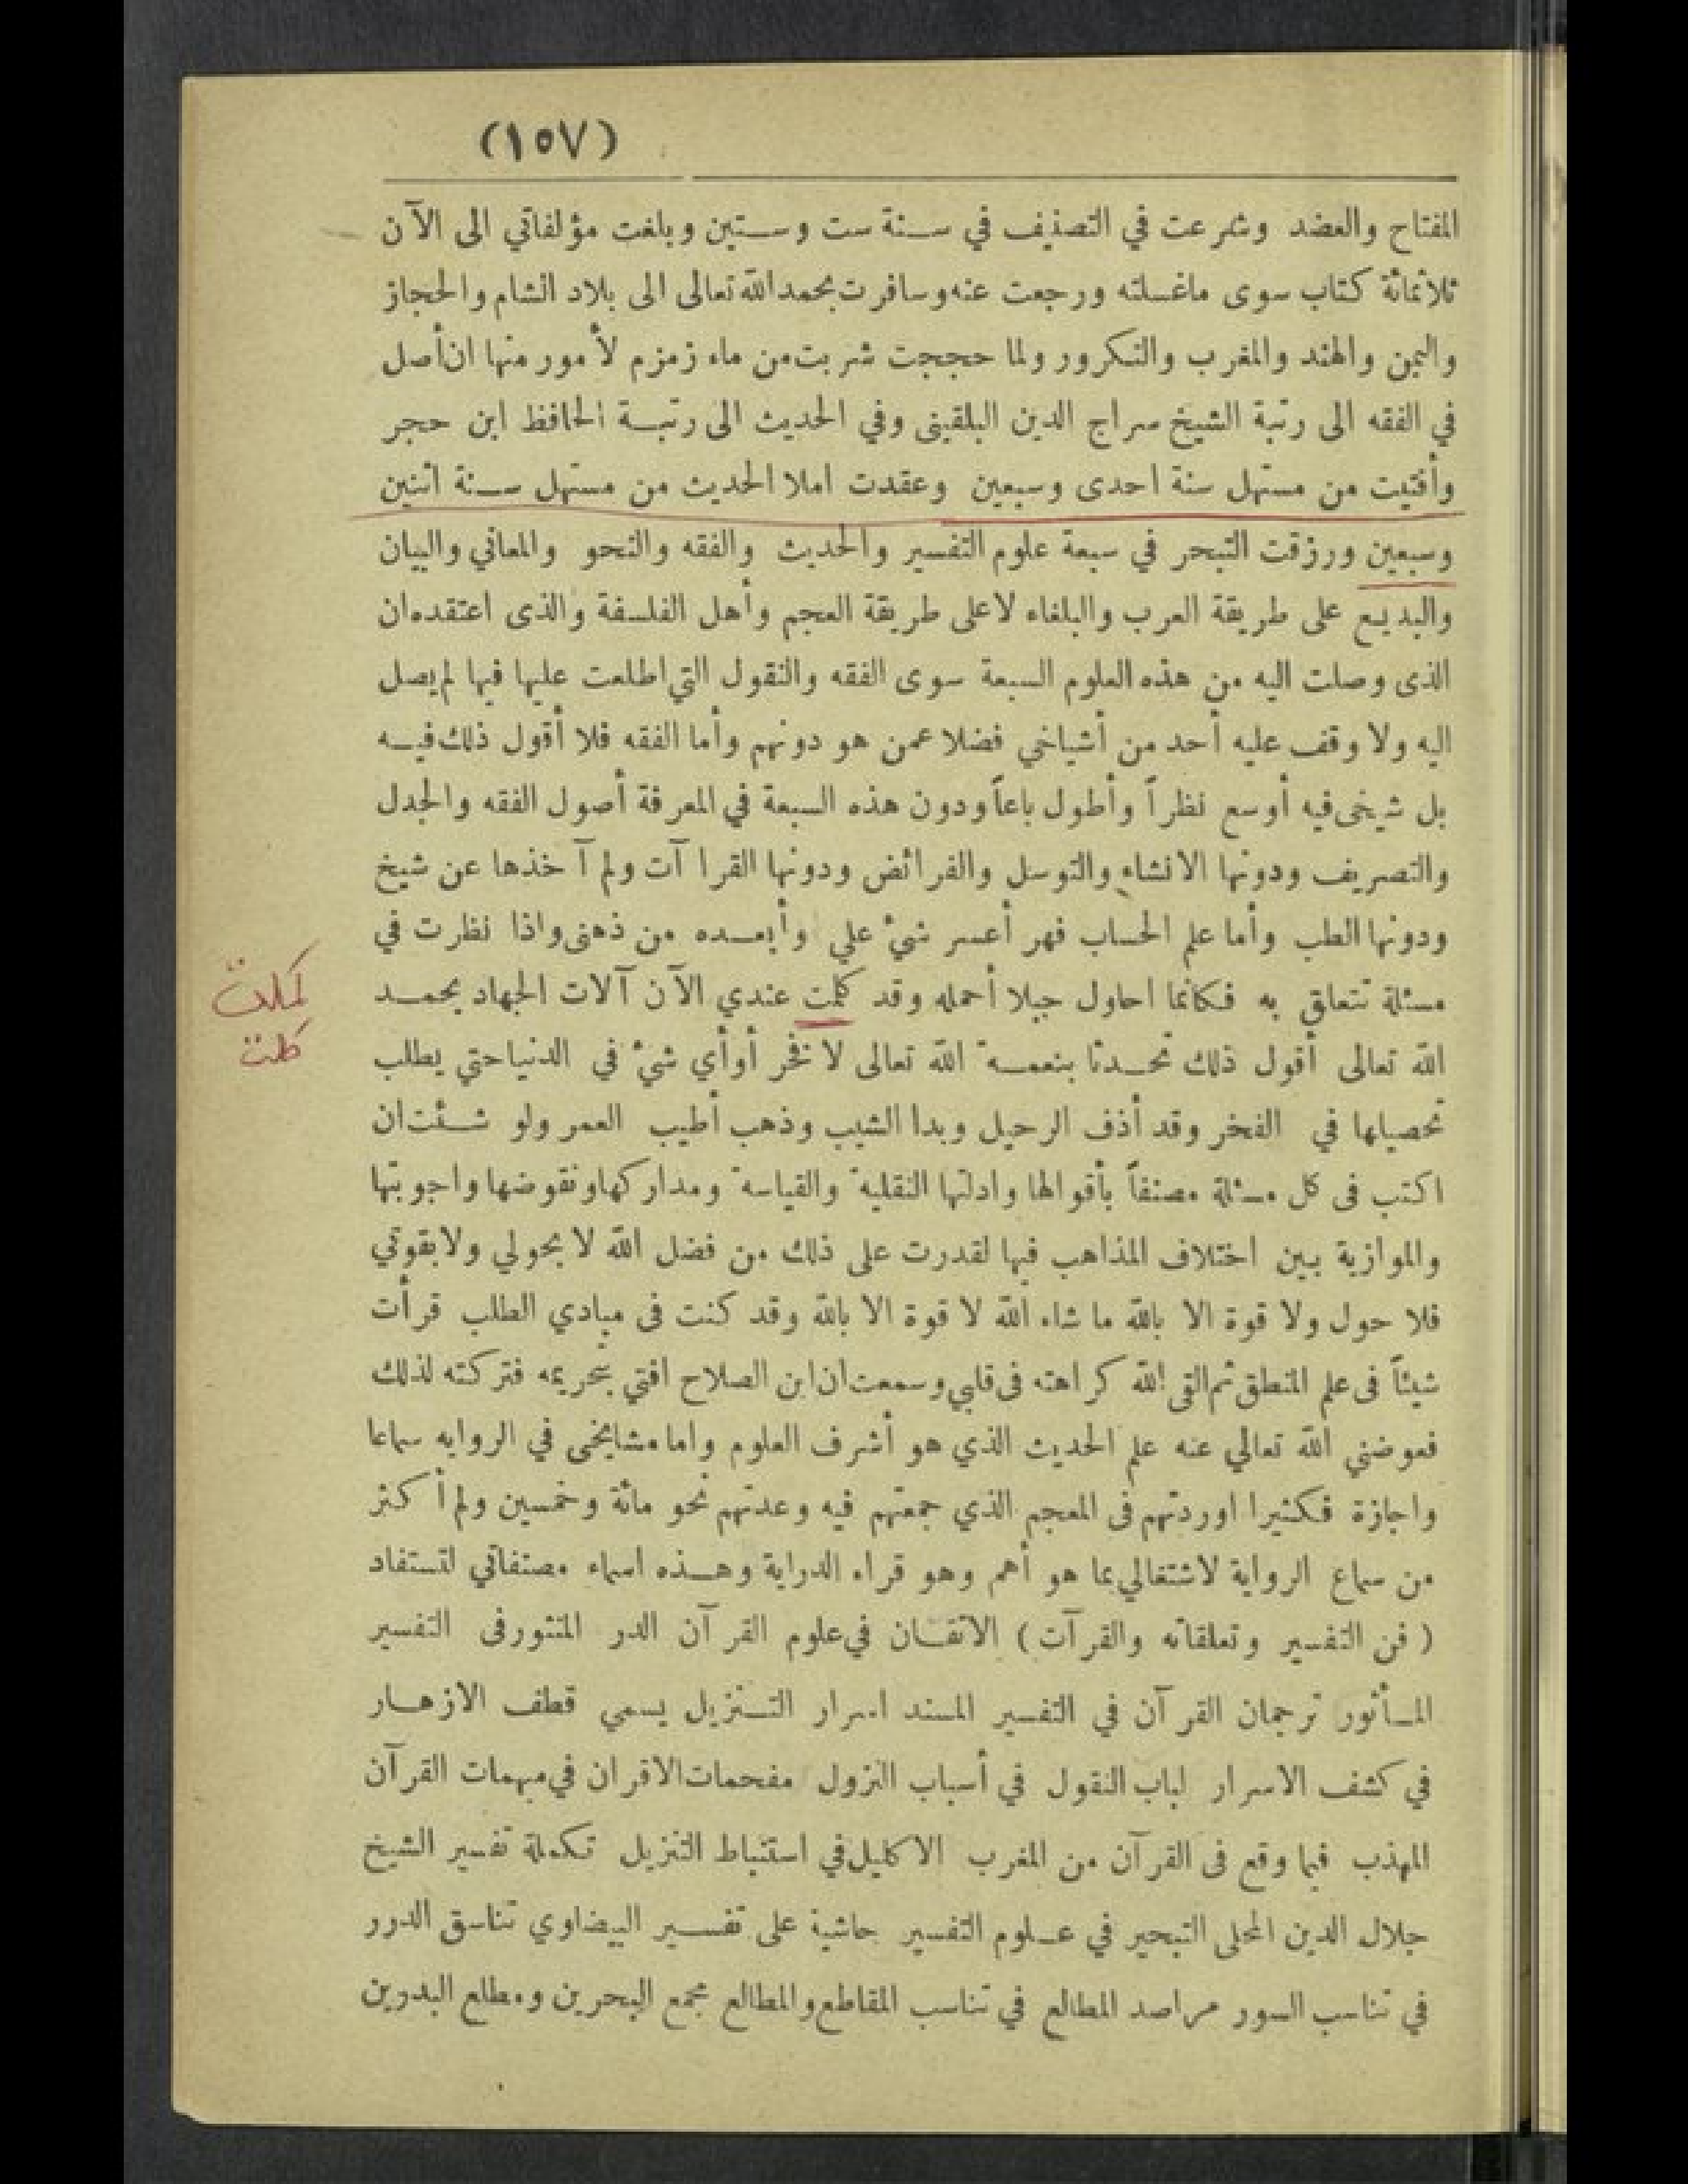 (١٥٧)
المفتاح والعضد وشرعت في التصنيف في سنة ست وستين وبلغت مؤلفاتي الى الآن
ثلاثمائة كتاب سوى ماغسلته ورجعت عنه وسافرت بحمد الله تعالى الى بلاد الشام والحجاز
واليمن والهند والمغرب والتكرور ولما حججت شربت من ماء زمزم لأمور منها ان أصل
في الفقه الى رتبة الشيخ سراج الدين البلقينى وفي الحديث الى رتبة الحافظ ابن حجر
وأفتيت من مستهل سنة احدى وسبعين وعقدت املا الحديث من مستهل سنة اثنين
وسبعين ورزقت التبحر في سبعة علوم التفسير والحديث والفقه والنحو والمعاني والبيان
والبديع على طريقة العرب والبلغاء لاعلى طريقة العجم وأهل الفلسفة والذى اعتقده ان
الذى وصلت اليه من هذه العلوم السبعة سوى الفقه والنقول التي اطلعت عليها فيها لم يصل
اليه ولا وقف عليه أحد من أشياخي فضلا عمن هو دونهم وأما الفقه فلا أقول ذلك فيه
بل شيخى فيه أوسع نظراً وأطول باعاً ودون هذه السبعة في المعرفة أصول الفقه والجدل
والتصريف ودونها الانشاء والتوسل والفرائض ودونها القراآت ولم آخذها عن شيخ
ودونها الطب وأما علم الحساب فهر أعسر شيْ علي وأبعده من ذهنى واذا نظرت في
مسئلة تتعلق به فكانما احاول جبلا أحمله وقد كلمت عندي الآن آلات الجهاد بحمد
كملت
كلت
الله تعالى أقول ذلك تحدثا بنعمة الله تعالى لا فخر أوأي شيْ في الدنيا حتي يطلب
تحصيلها في الفخر وقد أذف الرحيل وبدا الشيب وذهب أطيب العمر ولو شئت ان
اكتب فى كل مسئلة مصنفاً بأقوالها وادلتها النقلية والقياسة ومداركها ونقوضها واجوبتها
والموازية بين اختلاف المذاهب فيها لقدرت على ذلك من فضل الله لا بحولي ولا بقوتي
فلا حول ولا قوة الا بالله ما شاء الله لا قوة الا بالله وقد كنت فى مبادي الطلب قرأت
شيئاً فى علم المنطق ثم القى الله كراهته فى قلبي وسمعت ان ابن الصلاح افتي بتحريمه فتركته لذلك
فعوضني الله تعالي عنه علم الحديث الذي هو أشرف العلوم واما مشايخى في الروايه سماعا
واجازة فكثيرا اوردتهم فى المعجم الذي جمعتهم فيه وعدتهم نحو مائة وخمسين ولم أكثر
من سماع الرواية لاشتغالي بما هو أهم وهو قراء الدراية وهذه اسماء مصنفاتي لتستفاد
( فن التفسير وتعلقاته والقرآت ) الاتقان في علوم القرآن الدر المنثور فى التفسير
المأثور ترجمان القرآن في التفسير المسند اسرار التنزيل يسمي قطف الازهار
في كشف الاسرار لباب النقول في أسباب النزول مفحمات الاقران في مبهمات القرآن
المهذب فيما وقع فى القرآن من المغرب الاكليل في استنباط التنزيل تكملة تفسير الشيخ
جلال الدين المحلى التبحير في علوم التفسير حاشية على تفسير البيضاوي تناسق الدرر
في تناسب السور مراصد المطالع في تناسب المقاطع والمطالع مجمع البحرين ومطلع البدرين